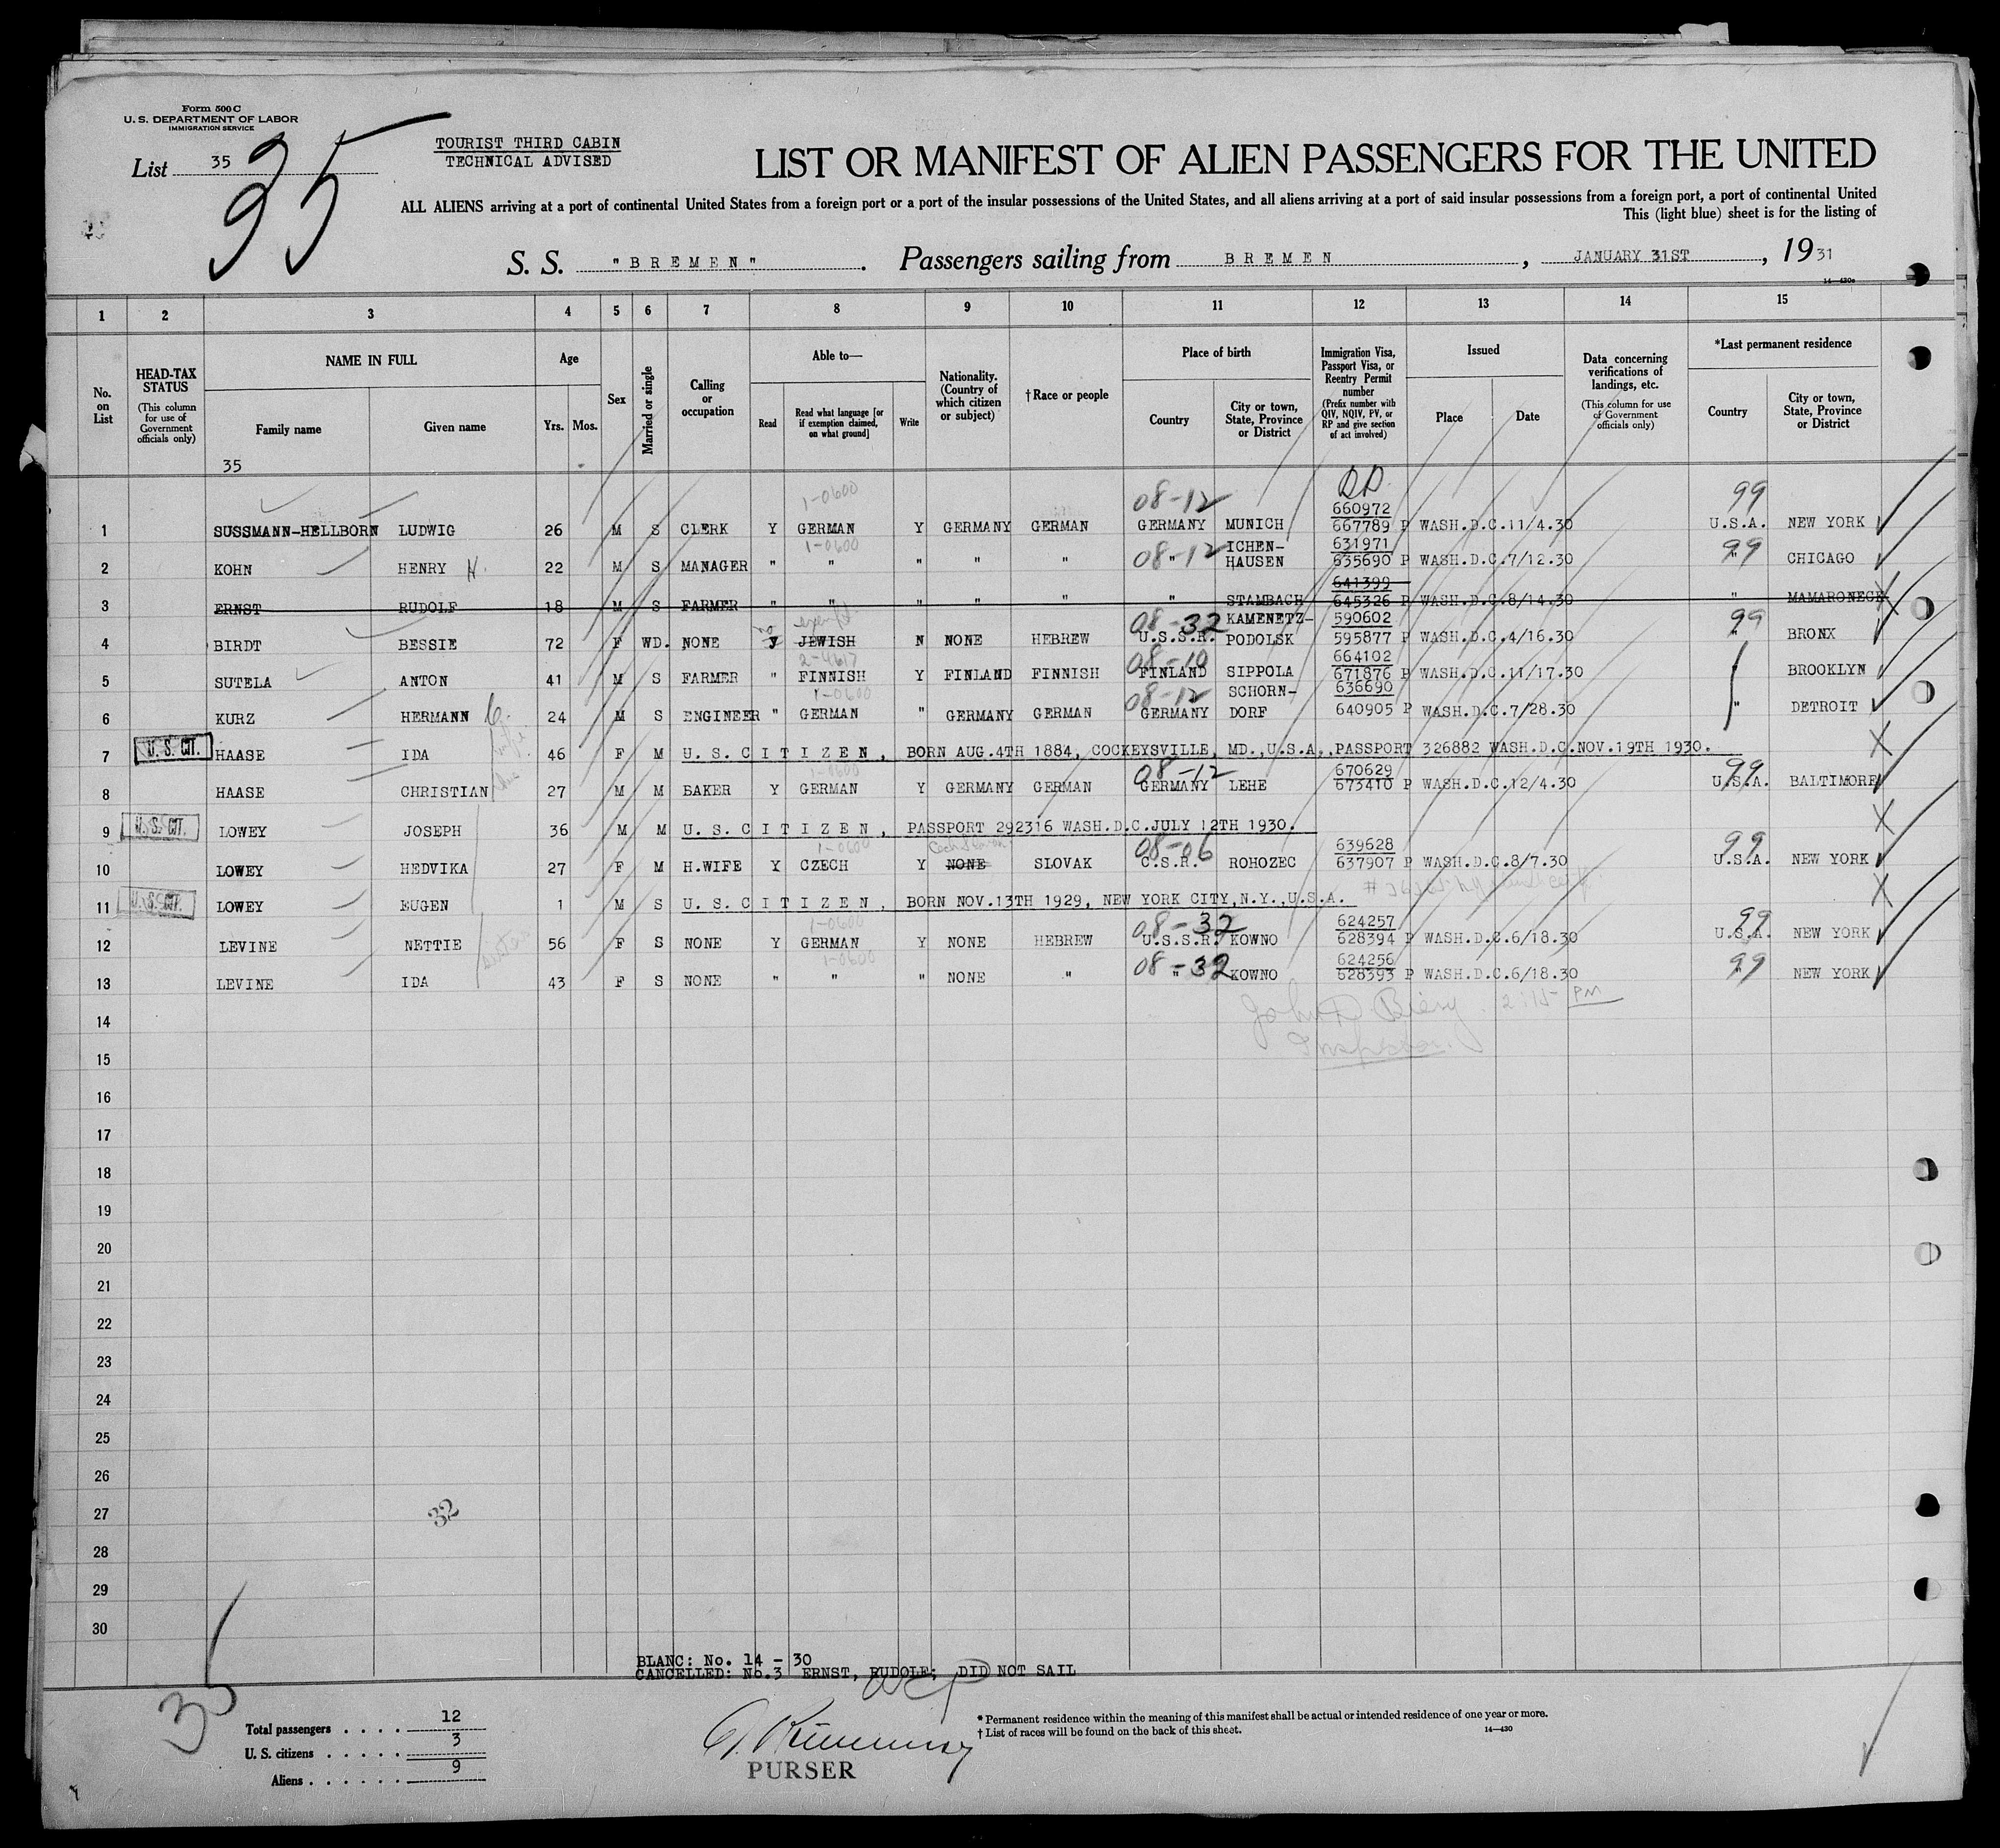 Form 500 C
U. S. DEPARTMENT OF LABOR
IMMIGRATION SERVICE
List 35
35
TOURIST THIRD CABIN
TECHNICAL ADVISED
LIST OR MANIFEST OF ALIEN PASSENGERS FOR THE UNITED
ALL ALIENS arriving at a port of continental United States from a foreign port or a port of the insular possessions of the United States, and all aliens arriving at a port of said insular possessions from a foreign port, a port of continental United
This (light blue) sheet is for the listing of
S. S. "BREMEN". Passengers sailing from BREMEN, JANUARY 31ST, 19 31
1 2 3 4 5 6 7 8 9 10 11 12 13 14 15
No. on List
HEAD-TAX STATUS (This column for use of Government officials only)
NAME IN FULL
Family name Given name
Age
Yrs. Mos.
Sex
Married or single
Calling or occupation
Able to—
Read Read what language [or if exemption claimed, on what ground] Write
Nationality. (Country of which citizen or subject)
† Race or people
Place of birth
Country City or town, State, Province or District
Immigration Visa, Passport Visa, or Reentry Permit number (Prefix number with QIV, NQIV, PV, or RP and give section of act involved)
Issued
Place Date
Data concerning verifications of landings, etc. (This column for use of Government officials only)
*Last permanent residence
Country City or town, State, Province or District
35
1-0600 08-12 660972 99
1 SUSSMANN-HELLBORN LUDWIG 26 M S CLERK Y GERMAN Y GERMANY GERMAN GERMANY MUNICH 667789 P WASH.D.C. 11/4.30 U.S.A. NEW YORK
1-0600 08-12 ICHEN- 631971 99
2 KOHN HENRY H. 22 M S MANAGER " " " " " " HAUSEN 635690 P WASH.D.C. 7/12.30 " CHICAGO
641399
3 ERNST RUDOLF 18 M S FARMER " " " " " " STAMBACH 645326 P WASH.D.C. 8/14.30 " MAMARONECK
no exempt 08-32 KAMENETZ- 590602 99
4 BIRDT BESSIE 72 F WD. NONE Y JEWISH N NONE HEBREW U.S.S.R. PODOLSK 595877 P WASH.D.C. 4/16.30 " BRONX
2-4617 08-10 664102
5 SUTELA ANTON 41 M S FARMER " FINNISH Y FINLAND FINNISH FINLAND SIPPOLA 671876 P WASH.D.C. 11/17.30 " BROOKLYN
1-0600 08-12 SCHORN- 636690
6 KURZ HERMANN C. 24 M S ENGINEER " GERMAN " GERMANY GERMAN GERMANY DORF 640905 P WASH.D.C. 7/28.30 " DETROIT
7 U. S. CIT. HAASE IDA 46 F M U.S. CITIZEN, BORN AUG.4TH 1884, COCKEYSVILLE, MD.,U.S.A., PASSPORT 326882 WASH.D.C.NOV.19TH 1930.
1-0600 08-12 670629 99
8 HAASE CHRISTIAN 27 M M BAKER Y GERMAN Y GERMANY GERMAN GERMANY LEHE 673410 P WASH.D.C. 12/4.30 U.S.A. BALTIMORE
9 U. S. CIT. LOWEY JOSEPH 36 M M U.S. CITIZEN, PASSPORT 292316 WASH.D.C.JULY 12TH 1930.
1-0600 08-06 639628 99
10 LOWEY HEDVIKA 27 F M H.WIFE Y CZECH Y NONE SLOVAK C.S.R. ROHOZEC 637907 P WASH.D.C. 8/7.30 U.S.A. NEW YORK
11 U. S. CIT. LOWEY EUGEN 1 M S U.S. CITIZEN, BORN NOV.13TH 1929, NEW YORK CITY,N.Y.,U.S.A.
1-0600 08-32 624257 99
12 LEVINE NETTIE 56 F S NONE Y GERMAN Y NONE HEBREW U.S.S.R. KOWNO 628394 P WASH.D.C. 6/18.30 U.S.A. NEW YORK
1-0600 08-32 624256 99
13 LEVINE IDA 43 F S NONE " " " NONE " " KOWNO 628393 P WASH.D.C. 6/18.30 " NEW YORK
14 2:15 PM
Inspector.
15
16
17
18
19
20
21
22
23
24
25
26
27 32
28
29
30
BLANC: No. 14 - 30
CANCELLED: No.3 ERNST, RUDOLF; DID NOT SAIL
35
Total passengers 12
U. S. citizens 3
Aliens 9
PURSER
* Permanent residence within the meaning of this manifest shall be actual or intended residence of one year or more.
† List of races will be found on the back of this sheet.
14—430